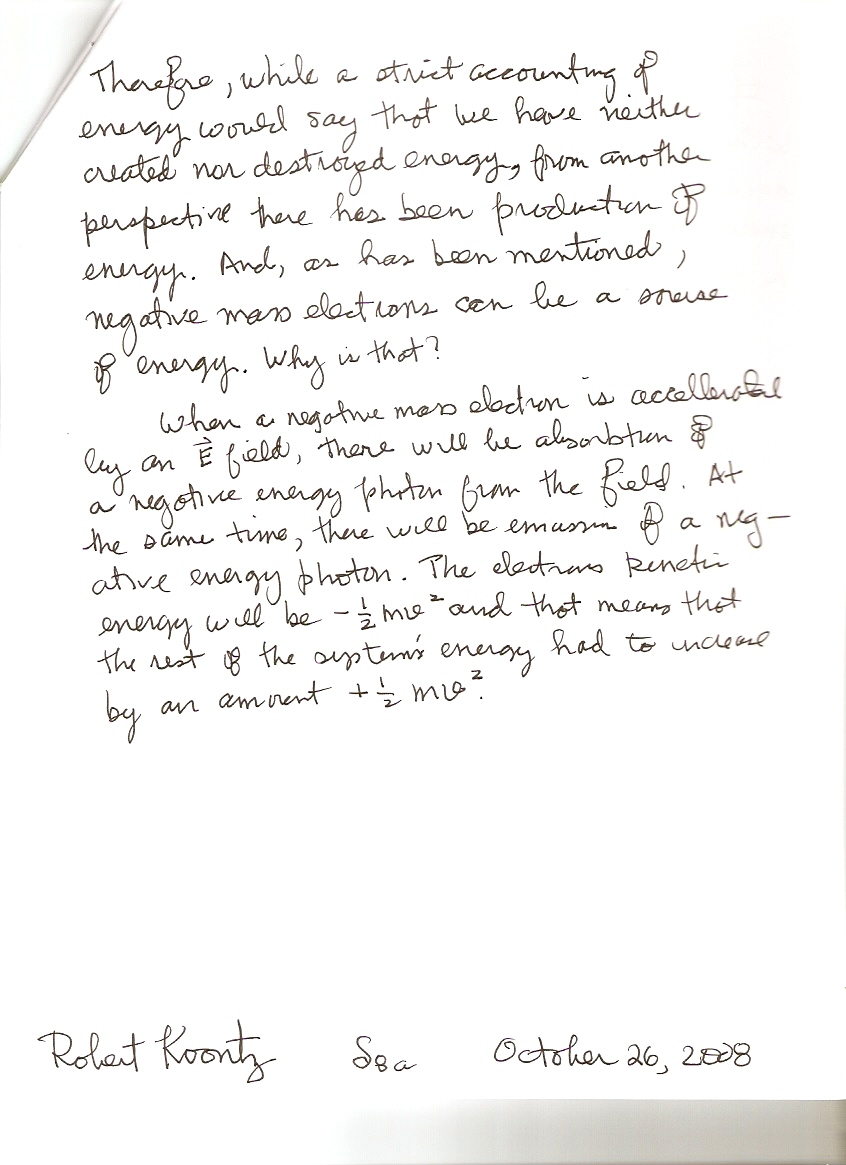 Therefore, while a strict accounting of
energy would say that we have neither
created nor destroyed energy, from another
perspective there has been production of
energy. And, as has been mentioned,
negative mass electrons can be a sourse
of energy. Why is that?
When a negative mass electron is accellerated
by an E⃗ field, there will be absorbtion of
a negative energy photon from the field. At
the same time, there will be emission of a neg-
ative energy photon. The electrons kinetic
energy will be -½ mv² and that means that
the rest of the system's energy had to increase
by an amount +½ mv².
Robert Koontz S8a October 26, 2008